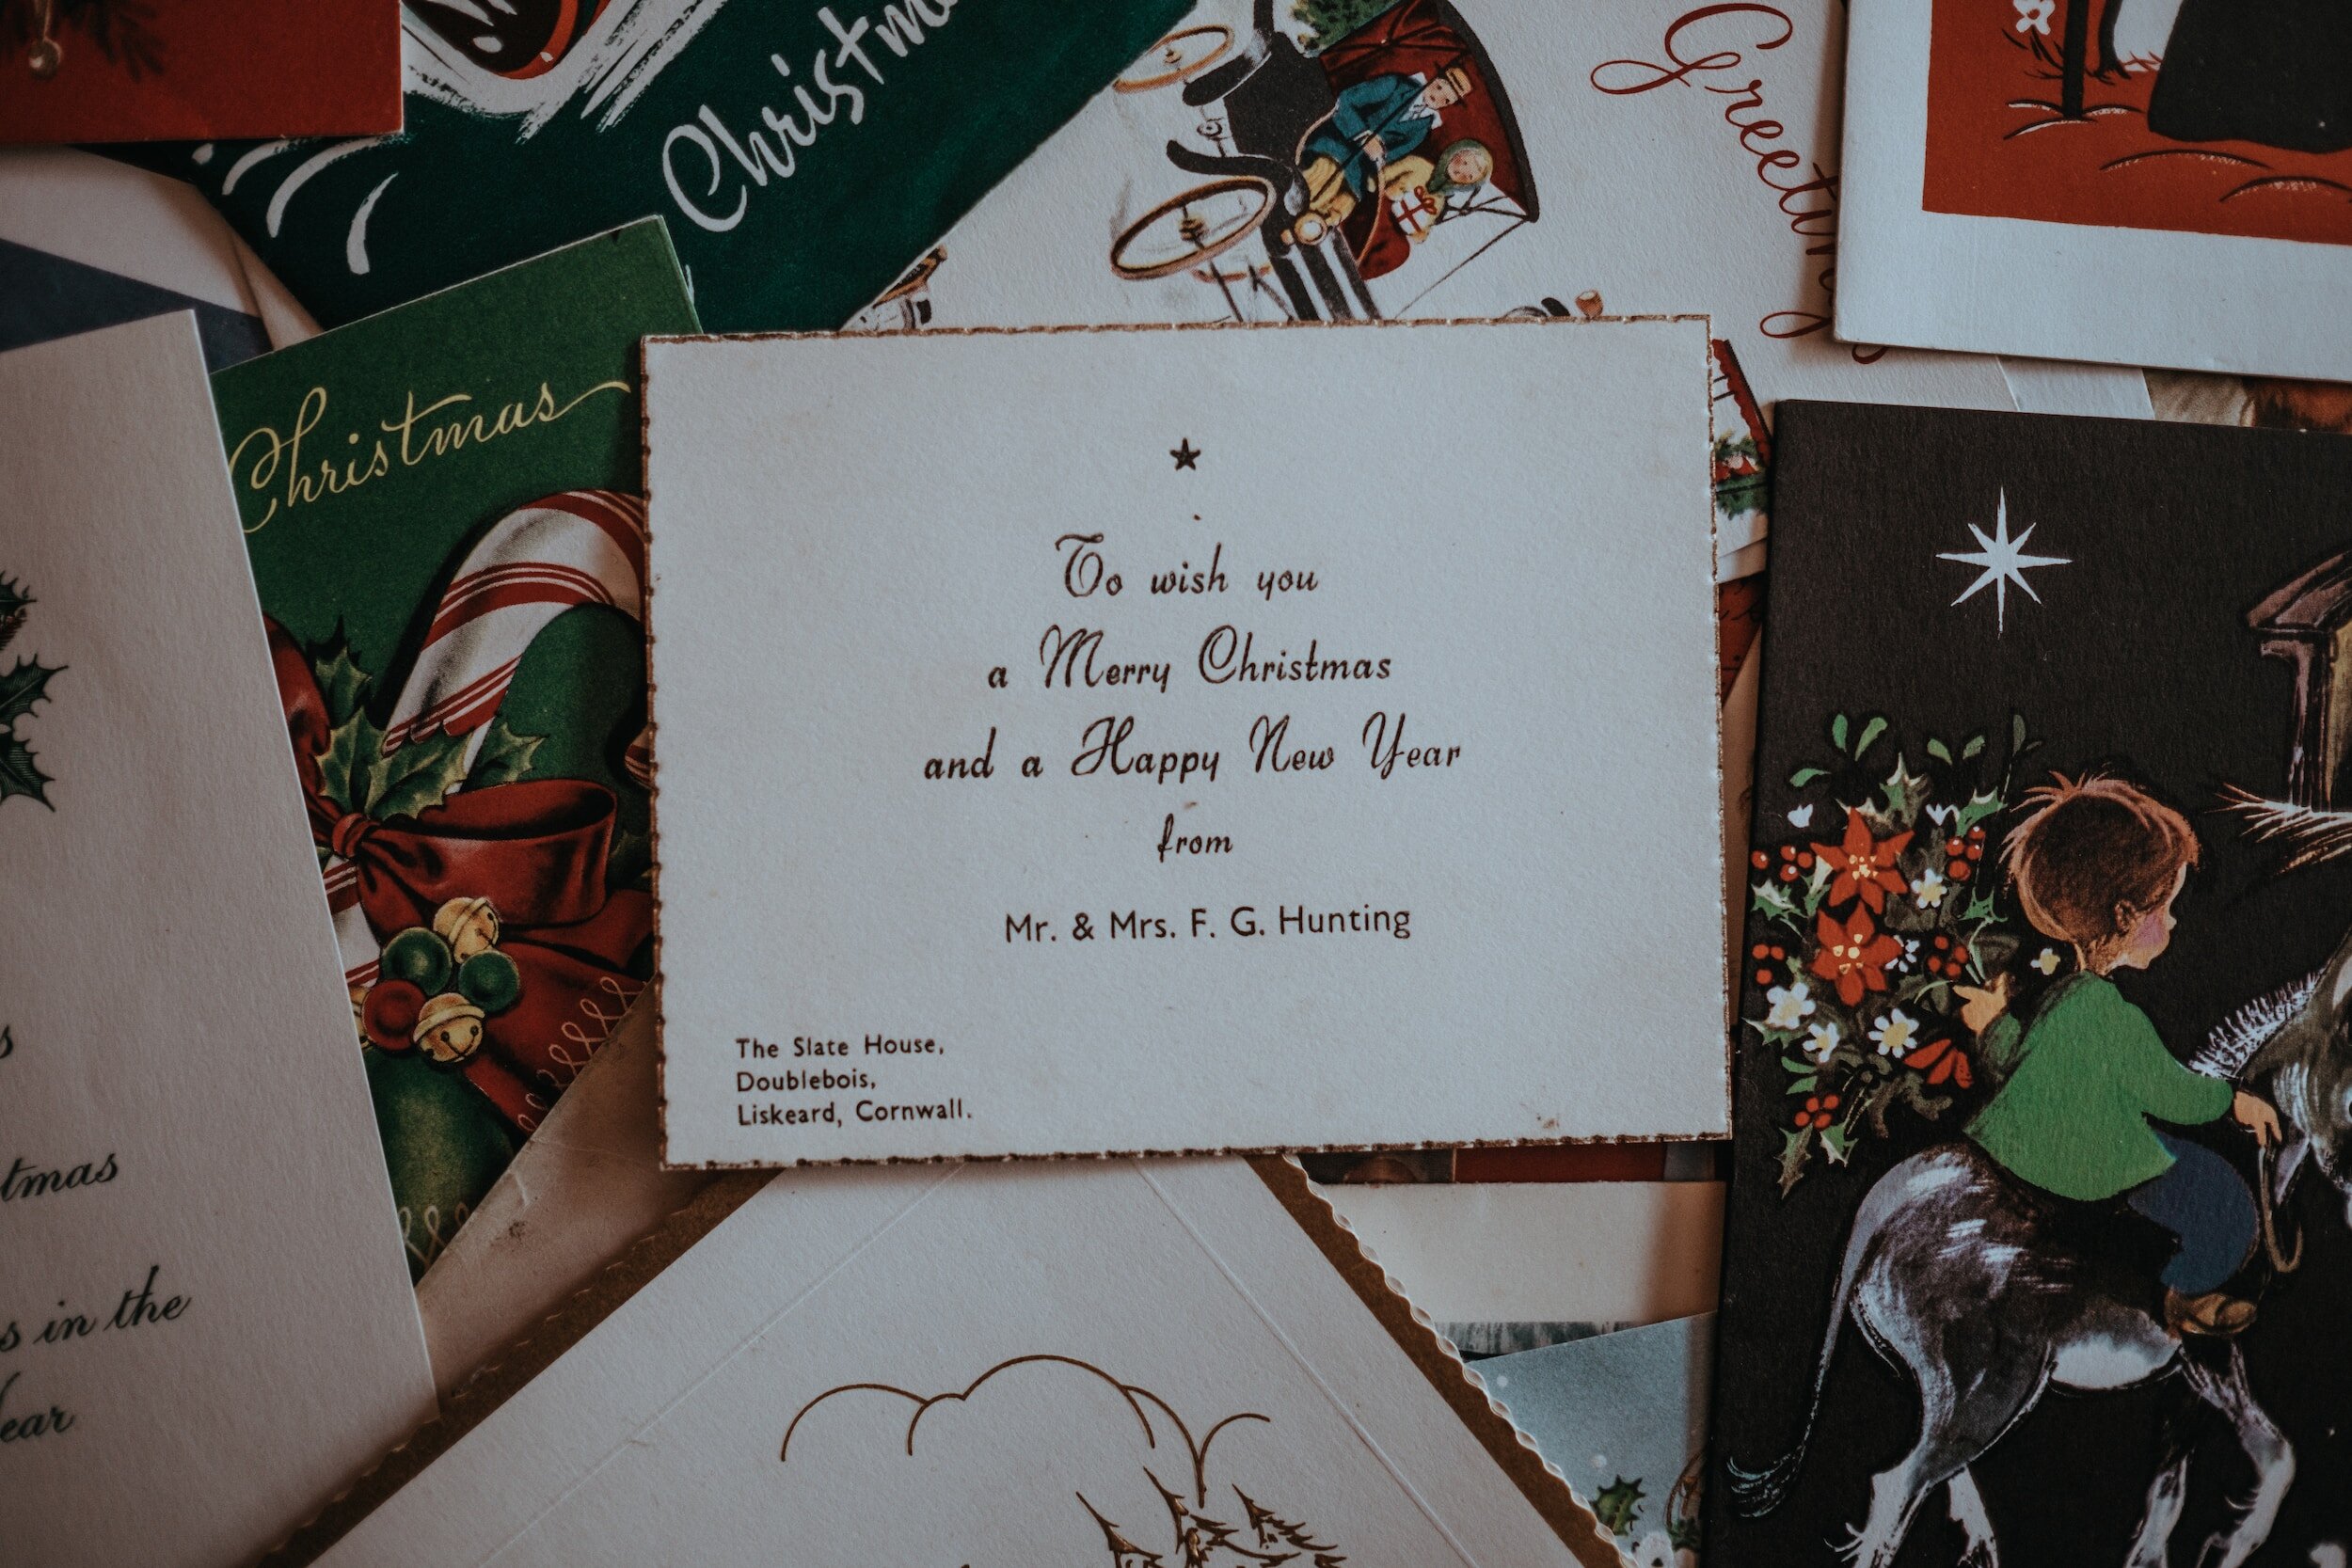 Christm
Greetings
Christmas
To wish you
a Merry Christmas
and a Happy New Year
from
Mr. & Mrs. F. G. Hunting
The Slate House,
Doublebois,
Liskeard, Cornwall.
s
tmas
s in the
ear